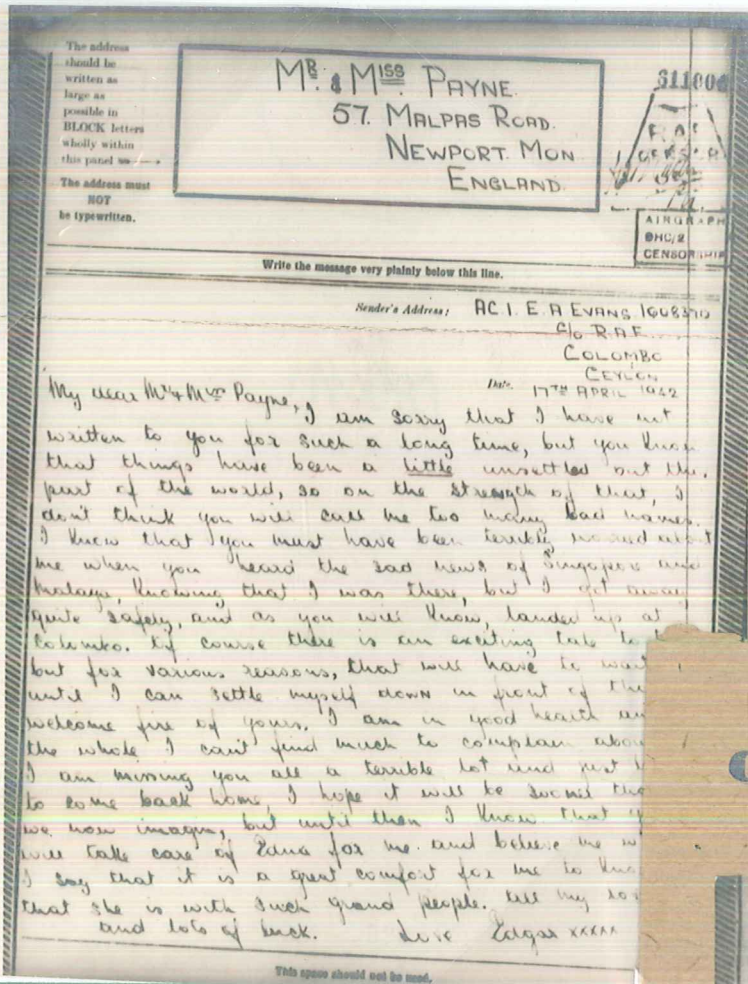 The address
should be
written as
large as
possible in
BLOCK letters
wholly within
this panel
The address must
NOT
be typewritten.
MR. & MISS PAYNE.
57. MALPAS ROAD.
NEWPORT. MON
ENGLAND.
R.A.F.
AIRGRAPH
CENSORSHIP
Write the message very plainly below this line.
Sender's Address: AC 1. E. A EVANS
c/o R.A.F.
COLOMBO
CEYLON
Date. 17TH APRIL 1942
My dear Mr & Mrs Payne,
I am sorry that I have not
written to you for such a long time, but you know
that things have been a little unsettled out
part of the world, so on the strength of that, I
don't think you will call me too many bad names.
I know that you must have been terribly worried about
me when you heard the sad news of Singapore and
Malaya, knowing that I was there, but I got away
quite safely, and as you will know, landed up at
Colombo. Of course there is an exciting tale
but for various reasons, that will have to wait
until I can settle myself down in front of
welcome fire of yours. I am in good health
the whole I can't find much to complain
I am missing you all a terrible lot and just
to come back home, I hope it will be sooner
we now imagine, but until then I know that
will take care of Edna for me and believe me
I say that it is a great comfort for me to
that she is with such grand people. all my
and lots of luck. Love Edgar xxxxx
This space should not be used.